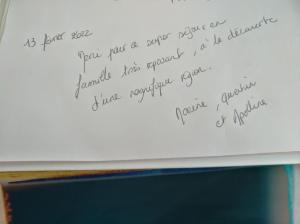 13 février 2022
Merci pour ce super séjour en
famille très reposant, à la découverte
d'une magnifique région.
Maxime, Quentin
et Apolline